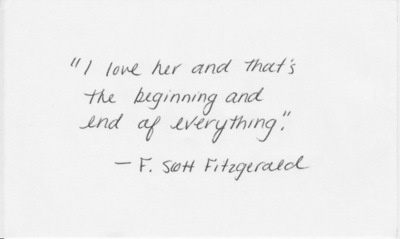 "I love her and that's
the beginning and
end of everything."
— F. Scott Fitzgerald